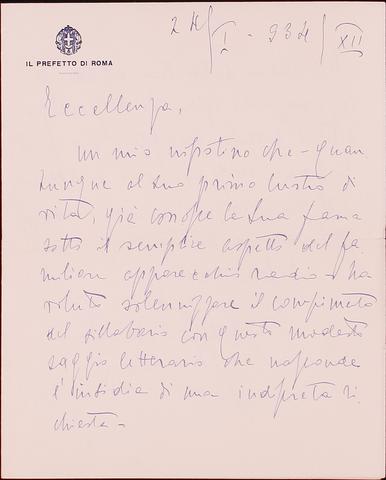 24/I-934/XII
IL PREFETTO DI ROMA
Eccellenza,
Un mio nipotino che - quan
tunque al suo primo lustro di
vita, già conosce la Sua fama
sotto il semplice aspetto del fa
miliare apparecchio radio - ha
voluto solennizzare il compimento
del sillabario con questo modesto
saggio letterario che nasconde
l'insidia di una indiscreta ri
chiesta -